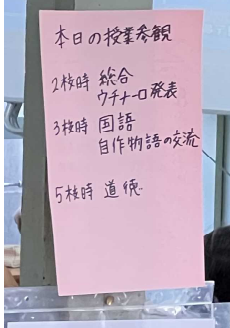 本日の授業参観
2校時 総合
ウチナーロ発表
3校時 国語
自作物語の交流
5校時 道徳